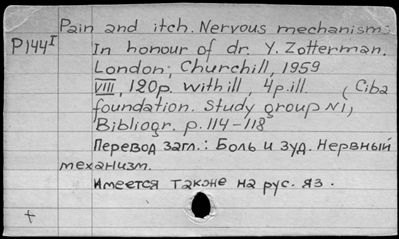 Pain and itch. Nervous mechanisms
P144I In honour of dr. Y. Zotterman.
London, Churchill, 1959
VIII, 120p. with ill, 4p.ill. (Ciba
foundation. Study group N1)
Bibliogr. p.114-118
Перевод загл.: Боль и зуд. Нервный
механизм.
Имеется также на рус. яз.
+